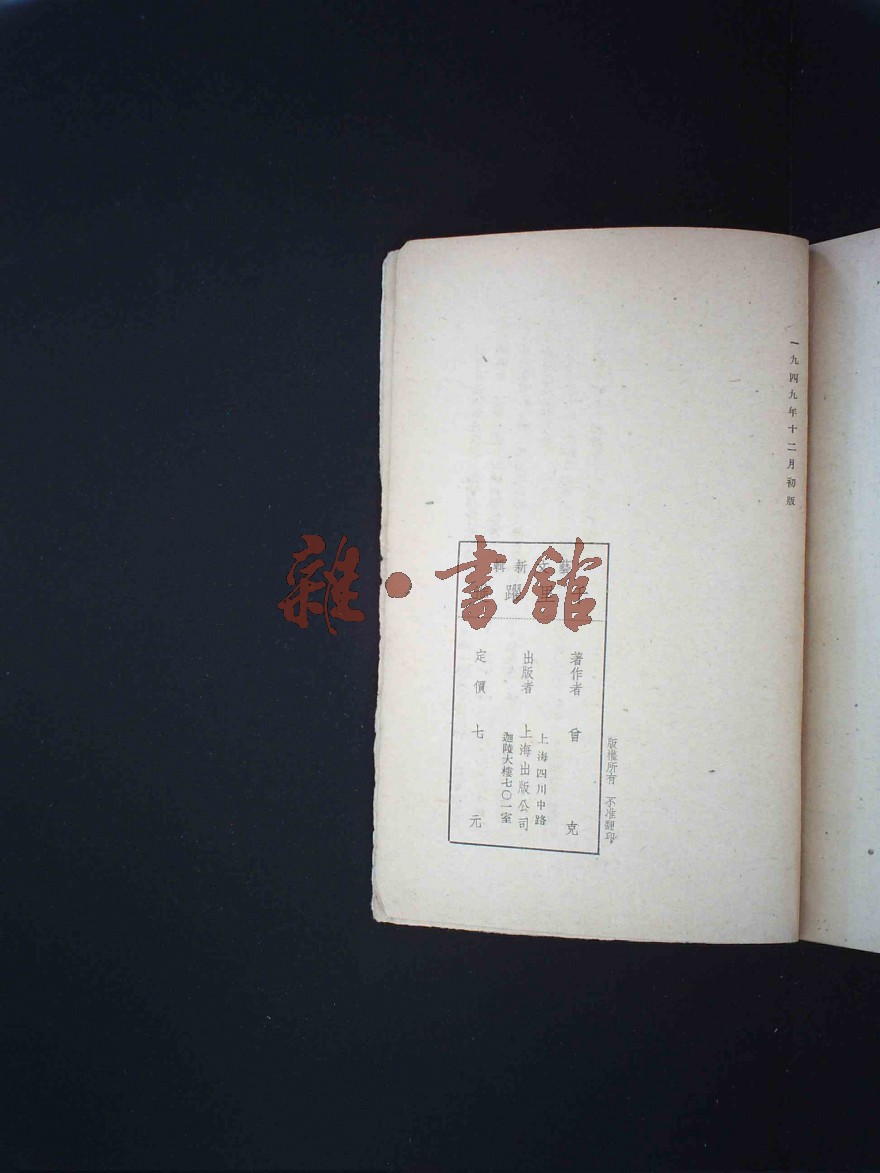 一九四九年十二月初版
版權所有 不准翻印
藝文新輯
千里躍
著作者 曾克
出版者 上海出版公司
上海四川中路
迦陵大樓七〇一室
定價七元
雜·書館